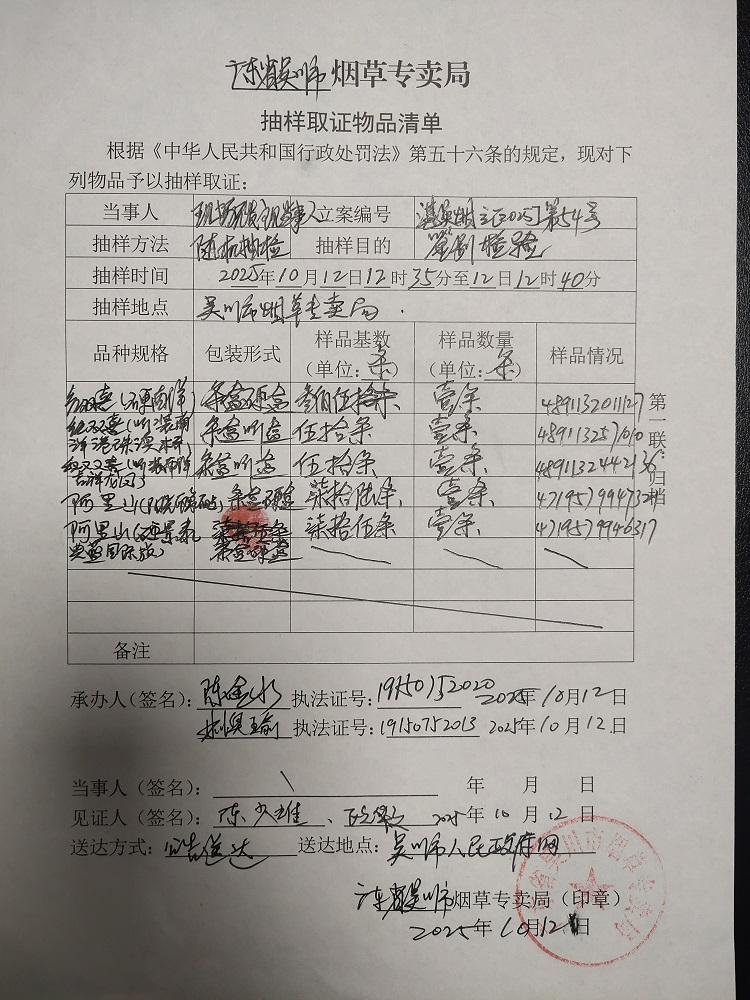 广东省吴川市烟草专卖局
抽样取证物品清单
根据《中华人民共和国行政处罚法》第五十六条的规定，现对下
列物品予以抽样取证：
当事人 现场未发现当事人 立案编号 湛吴烟立[2025]第54号
抽样方法 随机抽检 抽样目的 鉴别检验
抽样时间 2025年10月12日12时35分至12日12时40分
抽样地点 吴川市烟草专卖局.
品种规格 包装形式 样品基数（单位：条） 样品数量（单位：条） 样品情况
红双喜(硬南洋) 条盒硬盒 叁佰伍拾条 壹条 4891132011127
红双喜(听装南洋港珠澳大桥) 条盒听盒 伍拾条 壹条 4891132571010
红双喜(听装南洋吉祥龙凤) 条盒听盒 伍拾条 壹条 4891132442136
阿里山 条盒硬盒 柒拾陆条 壹条
阿里山 柒拾伍条 壹条 4719579946317
典藏国际版) 条盒硬盒
第一联：归档
备注
承办人（签名）： 执法证号：19150752020 2025年10月12日
林奥瑜 执法证号：19150752013 2025年10月12日
当事人（签名）： 年 月 日
见证人（签名）：陈少雄、 2025年10月12日
送达方式：公告送达 送达地点：吴川市人民政府网
广东省吴川市烟草专卖局（印章）
2025年10月12日
广东省吴川市烟草专卖局